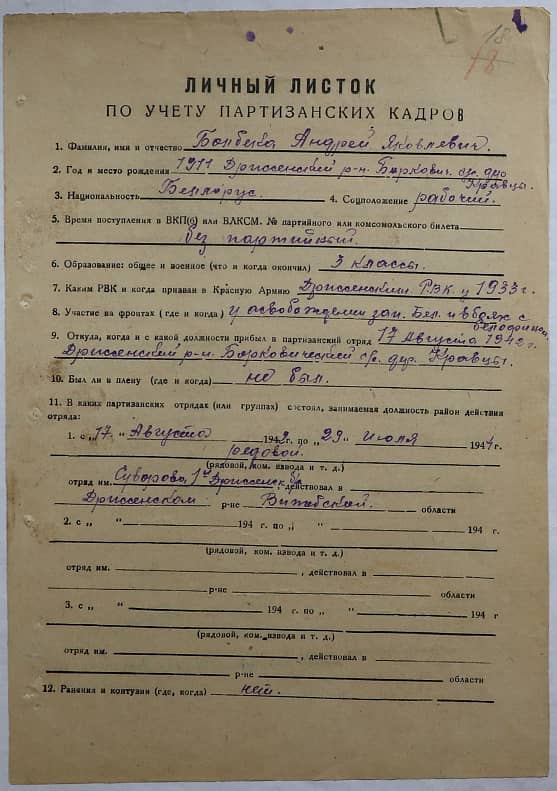 18
18
ЛИЧНЫЙ ЛИСТОК
ПО УЧЕТУ ПАРТИЗАНСКИХ КАДРОВ
1. Фамилия, имя и отчество Бомбека Андрей Яковлевич.
2. Год и место рождения 1911 Дриссенский р-н. Боркович. с/с. дер
Кравцы.
3. Национальность Белларус. 4. Соцположение рабочий.
5. Время поступления в ВКП(б) или ВЛКСМ. № партийного или комсомольского билета
без партийный.
6. Образование: общее и военное (что и когда окончил) 3 классы.
7. Каким РВК и когда призван в Красную Армию Дриссенским РВК у 1933г.
8. Участие на фронтах (где и когда) у освобождении зап. Бел. и в боях с
белофинами.
9. Откуда, когда и с какой должности прибыл в партизанский отряд 17 Августа 1942г
Дриссенский р-н. Борковический с/с. дер. Кравцы.
10. Был ли в плену (где и когда) не был.
11. В каких партизанских отрядах (или группах) состоял, занимаемая должность район действия
отряда:
1. с „17„ Августа 1942г. по „29" июля 1944г.
редовой.
(рядовой, ком. взвода и т. д.)
отряд им. Суворова, 1й Дриссенск. бр. действовал в
Дриссенском р-не Витебской. области
2. с „ " 194 г. по „ " 194 г
(рядовой, ком. взвода и т. д.)
отряд им. , действовал в
р-не области
3. с „ " 194 г. по „ " 194 г
(рядовой, ком. взвода и т. д.)
отряд им. , действовал в
р-не области
12. Ранения и контузии (где, когда) нет.